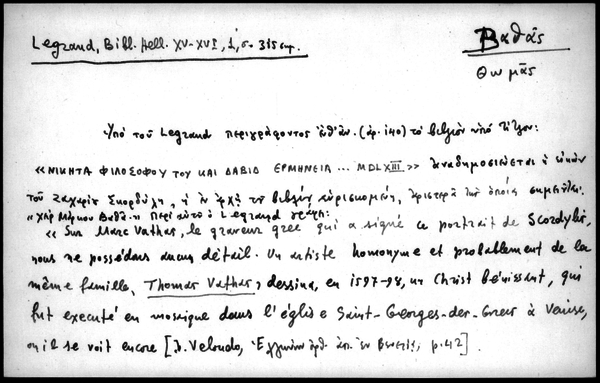 Legrand, Bibl. Hell. XV-XVI, 1, σ. 315 σημ.
Βαθᾶς
Θωμᾶς
Ὑπὸ τοῦ Legrand περιγράφοντος (ἀρ. 140) τὸ βιβλίον ὑπὸ τίτλον:
«ΝΙΚΗΤΑ ΦΙΛΟΣΟΦΟΥ ΤΟΥ ΚΑΙ ΔΑΒΙΔ ΕΡΜΗΝΕΙΑ ... MDLXIII» ἀναδημοσιεύεται ἡ εἰκὼν
τοῦ Ζαχαρία Σκορδύλη, ἡ ἐν ἀρχῇ τοῦ βιβλίου εὑρισκομένη, ἀριστερὰ τῆς ὁποίας σημειοῦται:
«χεὶρ Μάρκου Βαθᾶ» Περὶ αὐτοῦ ὁ Legrand γράφει:
«Sur Marc Vathas, le graveur grec qui a signé ce portrait de Scordylis,
nous ne possédons aucun détail. Un artiste homonyme et probablement de la
même famille, Thomas Vathas, dessina, en 1597-98, un Christ bénissant, qui
fut executé en mosaique dans l'église Saint-Georges-des-Grecs à Venise,
où il se voit encore [J. Veloudo, Ἑλλήνων ὀρθ. ἀπ. ἐν Βενετίᾳ, p. 42].